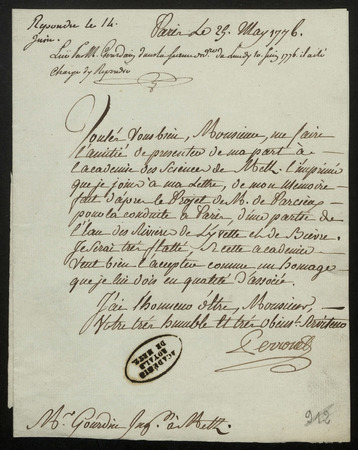 Repondre le 14
Juin.
Paris Le 29. May 1776.
Lue par M. Gourdain dans la seance du Lundy 10 Juin 1776. il a été
Chargé d'y Repondre
Voulés Vous bien, Monsieur, me faire
l'amitié de presenter de ma part à
l'academie des Sciences de Metz l'imprimé
que je joins à ma Lettre, de mon Memoire
fait d'après le Projet de M. de Parcieux
pour la conduite à Paris, d'une partie de
l'Eau des Rivieres de L'yvette et de Bievre.
Je serai très flatté si cette academie
veut bien l'accepter comme un hommage
que je lui dois en qualité d'associé.
J'ai l'honneur d'Etre, Monsieur,
Votre très humble Et très Obeisst. Serviteur
Perronet
ACADÉMIE
ROYALE
DE METZ
Mr. Gourdin Ingr. à Metz.
212